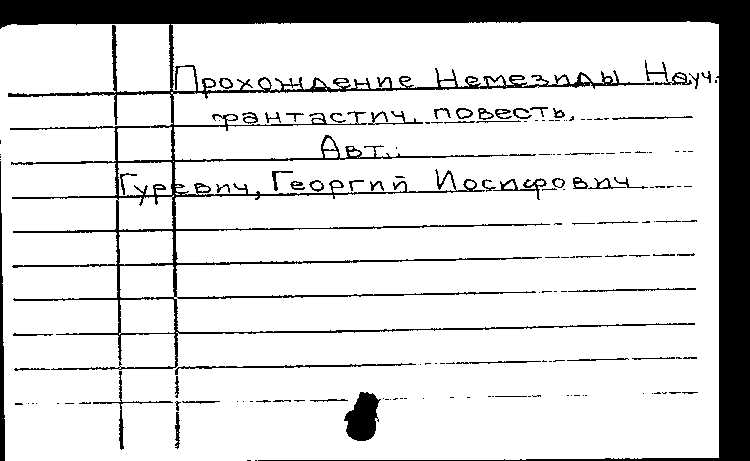 Прохождение Немезиды Науч.
фантастич. повесть.
Авт.:
Гуревич, Георгий Иосифович